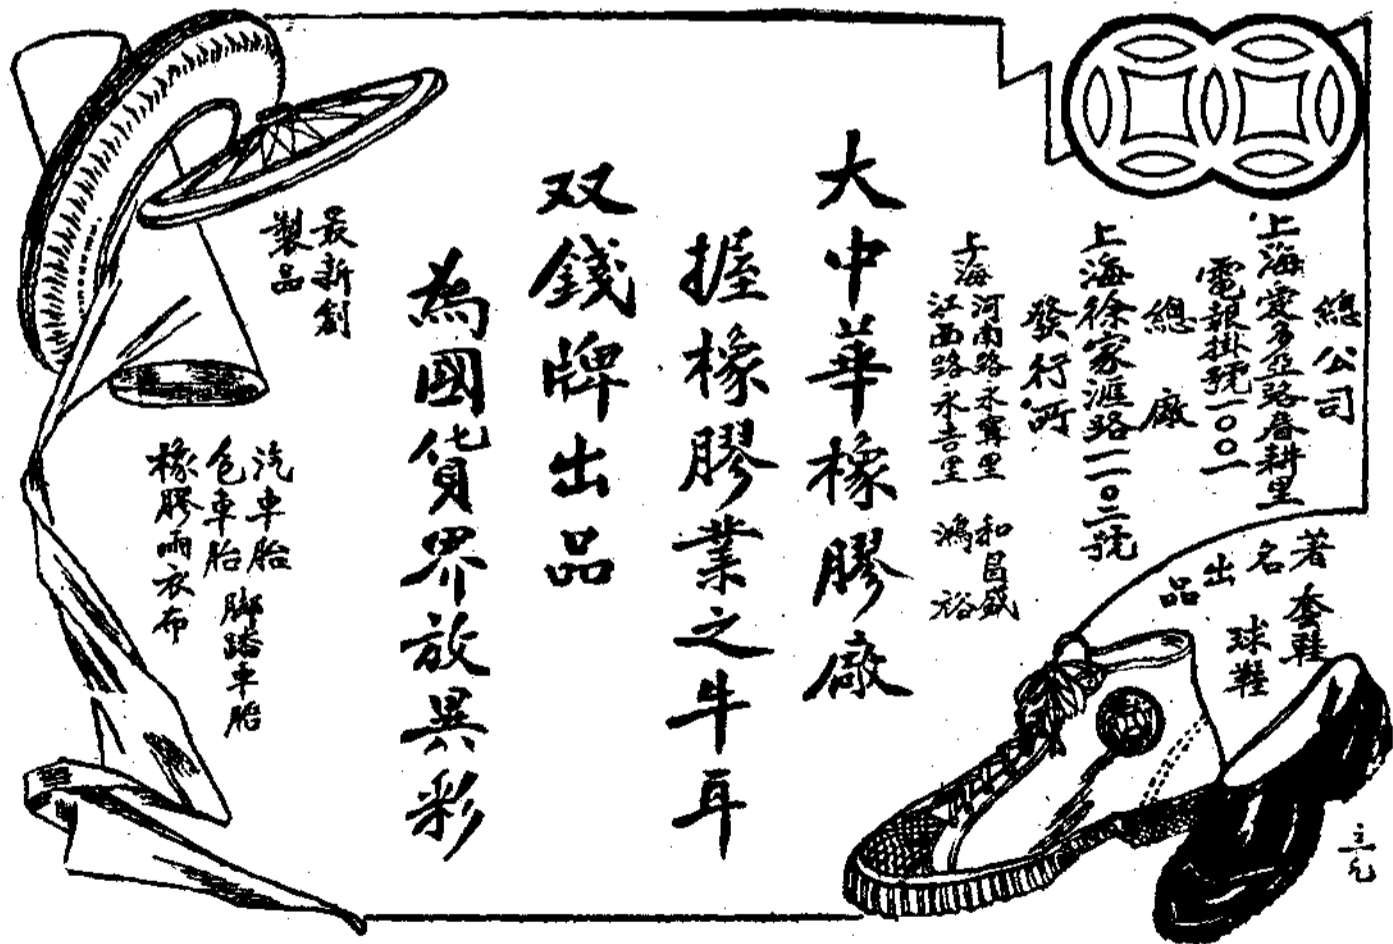 總公司
上海愛多亞路眷耕里
電報掛號一〇〇一
總廠
上海徐家滙路一一〇二號
發行所
上海河南路永寧里 和昌盛
江西路永吉里 鴻裕
大中華橡膠廠
握橡膠業之牛耳
双錢牌出品
為國貨界放異彩
著名出品
套鞋
球鞋
最新創
製品
汽車胎
包車胎 脚踏車胎
橡膠雨衣布